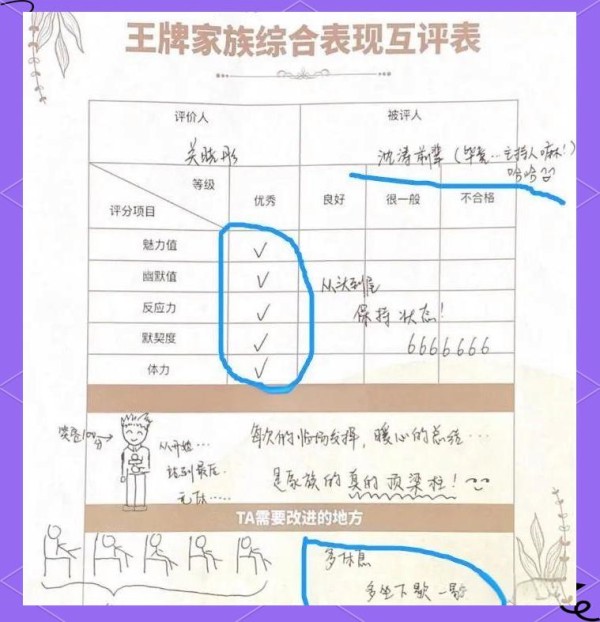 王牌家族综合表现互评表
评价人 被评人
关晓彤 沈涛前辈（毕竟…主持人嘛!）
哈哈
等级
优秀 良好 很一般 不合格
评分项目
魅力值 ✓
幽默值 ✓
从头到尾
反应力 ✓
保持状态!
默契度 ✓
6666666
体力 ✓
笑容100分
从开始…
站到最后
每次的临场发挥,暖心的总结…
是家族的真的顶梁柱!
TA需要改进的地方
多休息
多坐下歇一歇